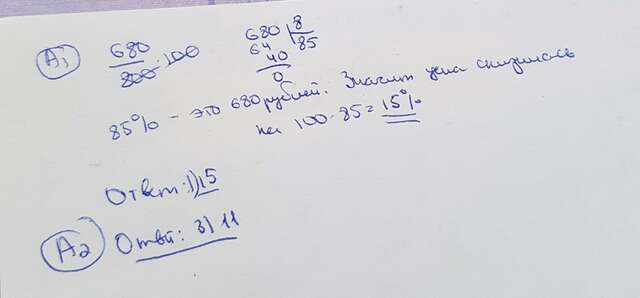 A1
680/800 · 100
680 | 8
64 85
40
0
85% - это 680 рублей. Значит цена снизилась
на 100-85=15%
Ответ: 1) 15
A2 Ответ: 3) 11